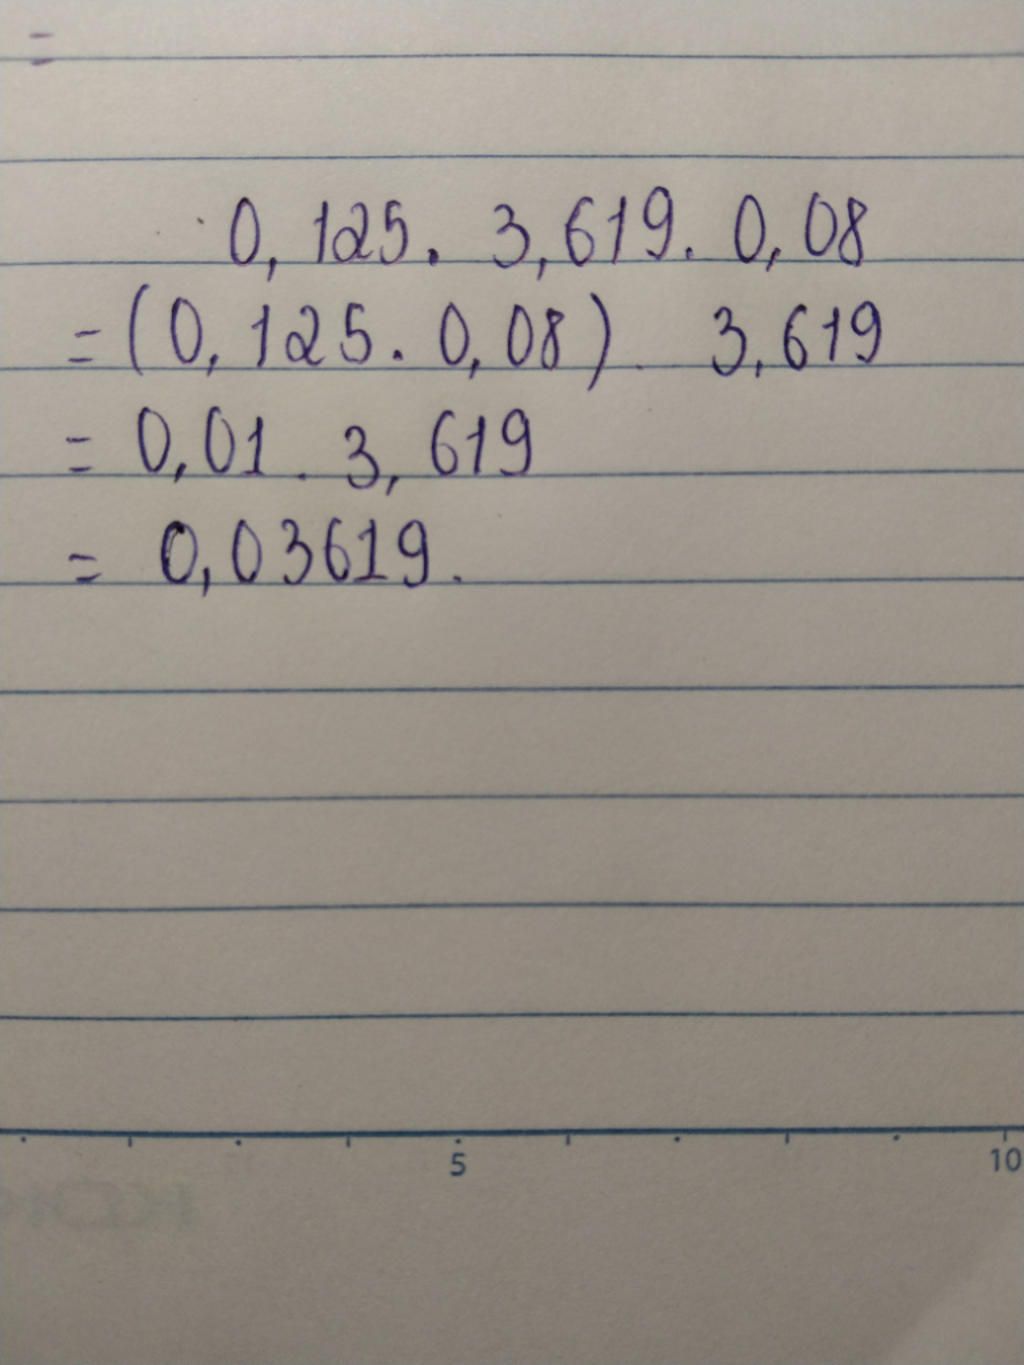 =
0,125. 3,619. 0,08
= (0,125. 0,08). 3,619
= 0,01. 3,619
= 0,03619.
5 10